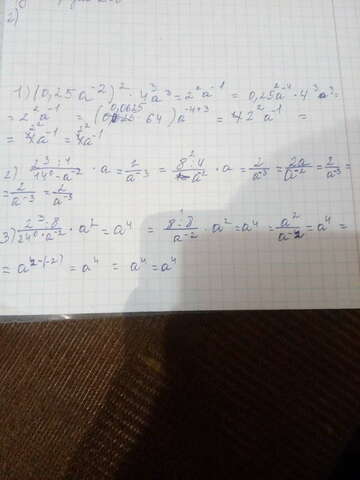 2)
1) (0,25a⁻²)² · 4³a³ = 2²a⁻¹ = 0,25²a⁻⁴ · 4³a³ =
= 2²a⁻¹ = (0,0625 · 64) a⁻⁴⁺³ = 2²a⁻¹ =
= 4a⁻¹ = 4a⁻¹
2) 2³ : 4 / 14⁰ · a⁻² · a = 2 / a⁻³ = 8 : 4 / a⁻² · a = 2 / a⁻³ = 2a / a⁻² = 2 / a⁻³ =
= 2 / a⁻³ = 2 / a⁻³
3) 2³ : 8 / 24⁰ · a⁻² · a² = a⁴ = 8 : 8 / a⁻² · a² = a⁴ = a² / a⁻² = a⁴ =
= a²⁻⁽⁻²⁾ = a⁴ = a⁴ = a⁴